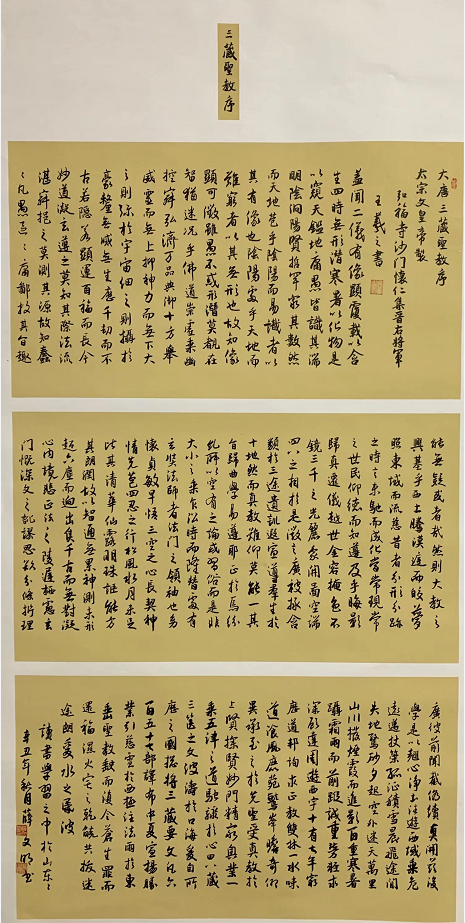 三藏聖教序
大唐三藏聖教序
太宗文皇帝製
弘福寺沙门懷仁集晉右將軍
王羲之書
蓋聞二儀有像顯覆載以含
生四時無形潛寒暑以化物是
以窺天鑑地庸愚皆識其端
明陰洞陽賢哲罕窮其數然
而天地苞乎陰陽而易識者以
其有像也陰陽處乎天地而
難窮者以其無形也故知像
顯可徵雖愚不惑形潛莫覩在
智猶迷况乎佛道崇虛乘幽
控寂弘濟万品典御十方舉
威靈而無上抑神力而無下大
之則弥於宇宙細之則攝於
豪釐無滅無生歷千劫而不
古若隱若顯運百福而長今
妙道凝玄遵之莫知其際法流
湛寂挹之莫測其源故知蠢
々凡愚區々庸鄙投其旨趣
能無疑或者哉然則大教之
興基乎西土騰漢庭而皎夢
照東域而流慈昔者分形分跡
之時言未馳而成化當常現常
之世民仰德而知遵及乎晦影
歸真遷儀越世金容掩色不
鏡三千之光麗象開圖空端
四八之相於是微言廣被拯含
類於三途遺訓遐宣導群生於
十地然而真教難仰莫能一其
旨歸曲學易遵耶正於焉紛
糺所以空有之論或習俗而是非
大小之乘乍沿時而隆替有
玄奘法師者法门之領袖也幼
懷貞敏早悟三空之心長契神
情先苞四忍之行松風水月未足
比其清華仙露明珠詎能方
其朗潤故以智通無累神測未形
超六塵而迥出隻千古而無對凝
心內境悲正法之陵遲栖慮玄
門慨深文之訛謬思欲分條析理
廣彼前聞截偽續真開茲後
學是以翹心淨土往遊西域乘危
遠邁杖策孤征積雪晨飛途間
失地驚砂夕起空外迷天萬里
山川撥煙霞而進影百重寒暑
躡霜雨而前蹤誠重勞輕求
深願達周遊西宇十有七年窮
歷道邦詢求正教雙林八水味
道飡風鹿苑鷲峰瞻奇仰
異承至言於先聖受真教於
上賢探賾妙門精窮奧業一
乘五律之道馳驟於心田八藏
三篋之文波濤於口海爰自所
歷之國捴將三藏要文凡六
百五十七部譯布中夏宣揚勝
業引慈雲於西極注法雨於東
垂聖教缺而復全蒼生罪而
還福濕火宅之乾焰共拔迷
途朗愛水之昏波
讀書學習之中於山東
辛丑年秋月薛文明書